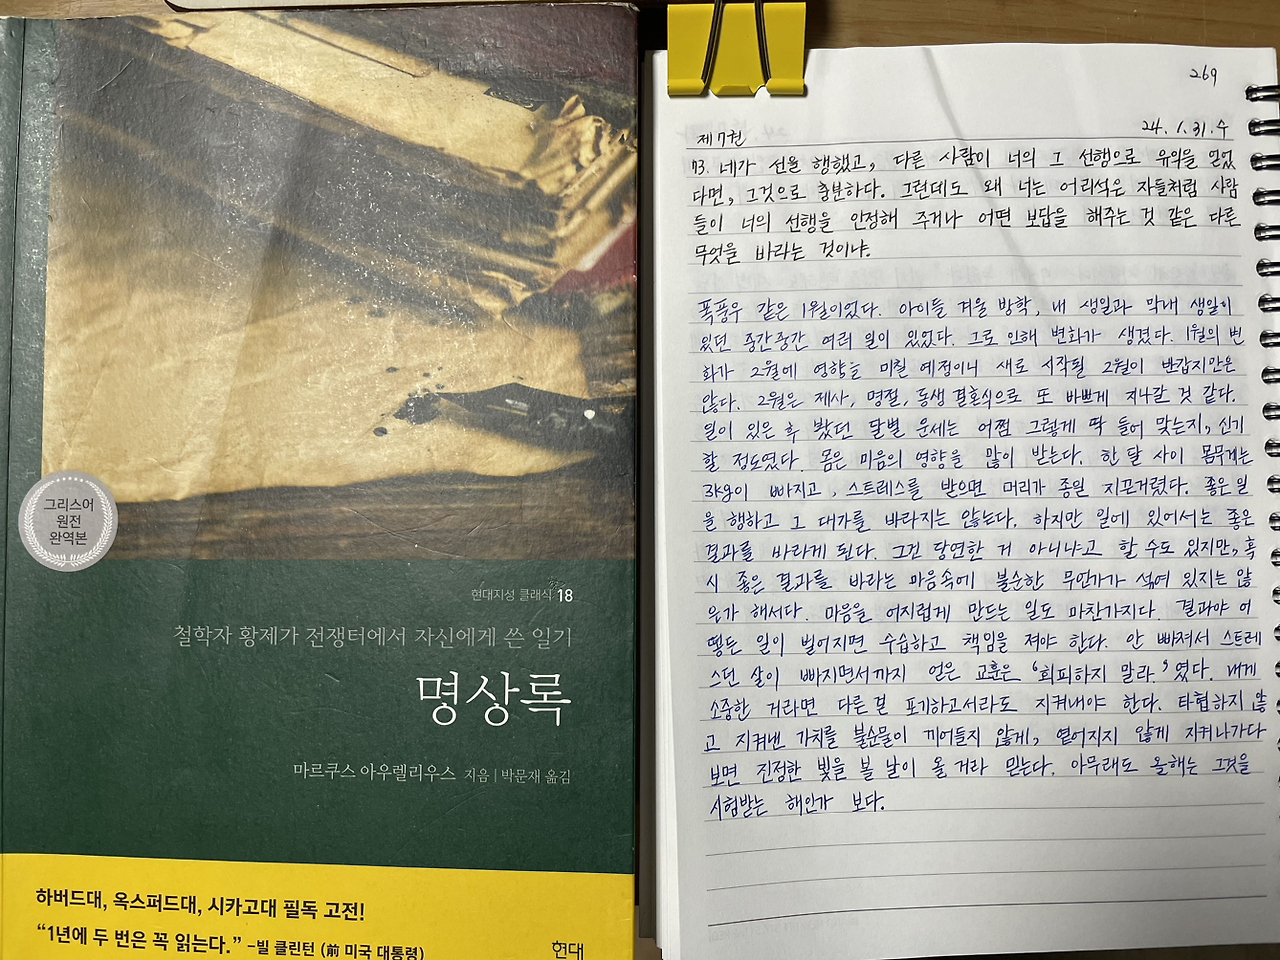 그리스어
원전
완역본
현대지성 클래식 18
철학자 황제가 전쟁터에서 자신에게 쓴 일기
명상록
마르쿠스 아우렐리우스 지음 | 박문재 옮김
하버드대, 옥스퍼드대, 시카고대 필독 고전!
“1년에 두 번은 꼭 읽는다.” –빌 클린턴 (前 미국 대통령)
현대
269
제7권
24. 1. 31. 수
73. 네가 선을 행했고, 다른 사람이 너의 그 선행으로 유익을 얻었
다면, 그것으로 충분하다. 그런데도 왜 너는 어리석은 자들처럼 사람
들이 너의 선행을 인정해 주거나 어떤 보답을 해주는 것 같은 다른
무엇을 바라는 것이냐.
폭풍우 같은 1월이었다. 아이들 겨울 방학, 내 생일과 막내 생일이
있던 중간중간 여러 일이 있었다. 그로 인해 변화가 생겼다. 1월의 변
화가 2월에 영향을 미칠 예정이니 새로 시작될 2월이 반갑지만은
않다. 2월은 제사, 명절, 동생 결혼식으로 또 바쁘게 지나갈 것 같다.
일이 있은 후 봤던 달별 운세는 어쩜 그렇게 딱 들어 맞는지, 신기
할 정도였다. 몸은 마음의 영향을 많이 받는다. 한 달 사이 몸무게는
3kg이 빠지고, 스트레스를 받으면 머리가 종일 지끈거렸다. 좋은 일
을 행하고 그 대가를 바라지는 않는다. 하지만 일에 있어서는 좋은
결과를 바라게 된다. 그건 당연한 거 아니냐고 할 수도 있지만, 혹
시 좋은 결과를 바라는 마음속에 불순한 무언가가 섞여 있지는 않
은가 해서다. 마음을 어지럽게 만드는 일도 마찬가지다. 결과야 어
떻든 일이 벌어지면 수습하고 책임을 져야 한다. 안 빠져서 스트레
스던 살이 빠지면서까지 얻은 교훈은 ‘회피하지 말라’였다. 내게
소중한 거라면 다른 걸 포기하고서라도 지켜내야 한다. 타협하지 않
고 지켜낸 가치를 불순물이 끼어들지 않게, 옅어지지 않게 지켜나가다
보면 진정한 빛을 볼 날이 올 거라 믿는다. 아무래도 올해는 그것을
시험받는 해인가 보다.